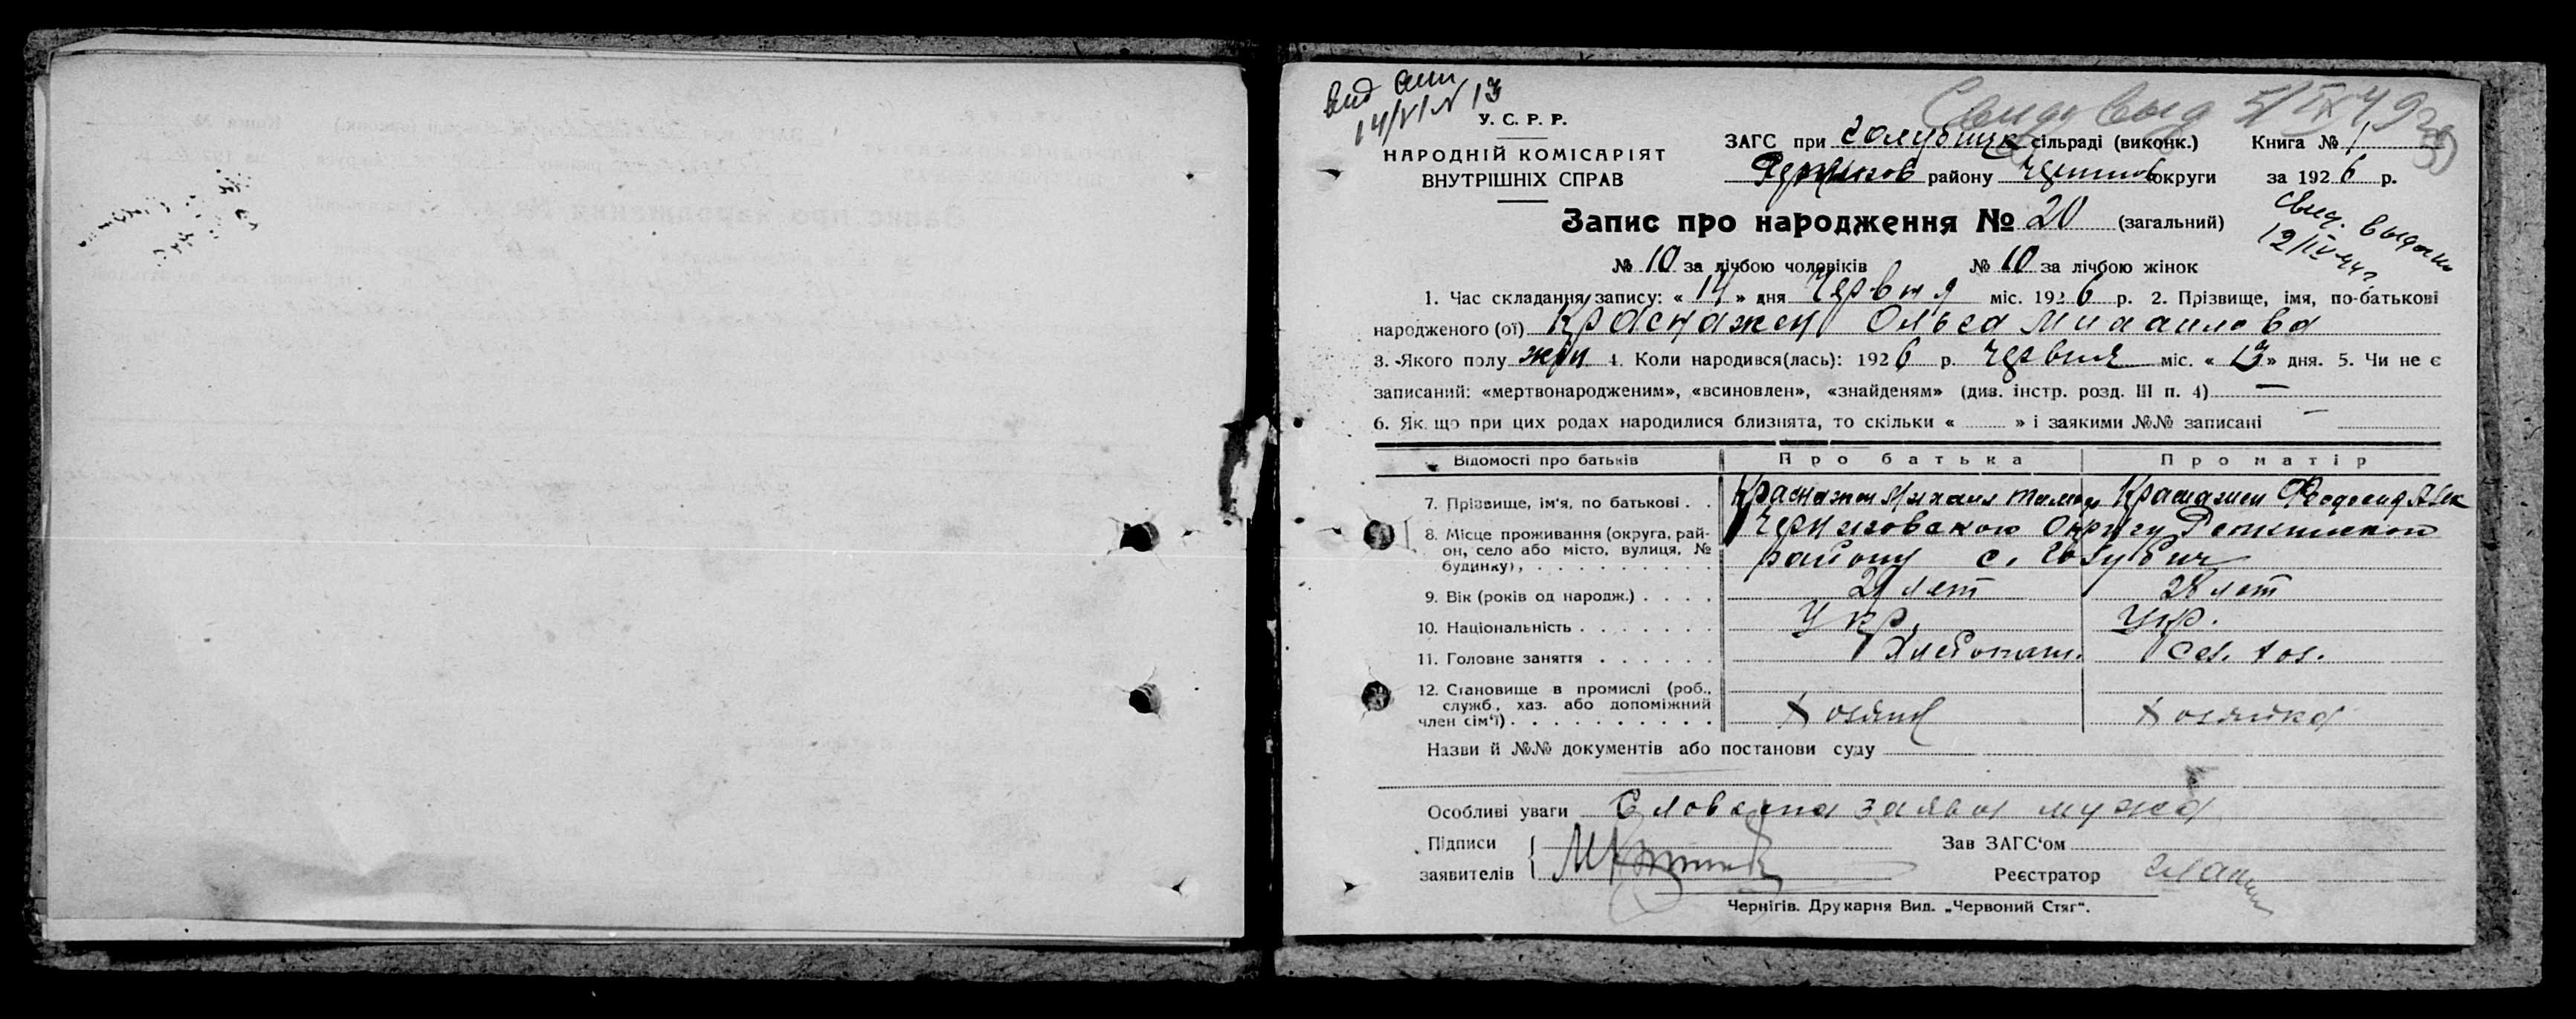 Вид
14/VI N 13
У. С. Р. Р.
НАРОДНІЙ КОМІСАРІЯТ
ВНУТРІШНІХ СПРАВ
ЗАГС при Голубицк сільраді (виконк.) Книга № 1
району округи за 1926 р.
Свид. выдано
12/IV-44г
Запис про народження № 20 (загальний)
№ 10 за лічбою чоловіків № 10 за лічбою жінок
1. Час складання запису: « 14 » дня Червня міс. 1926 р. 2. Прізвище, імя, по-батькові
народженого (ої) Краснажен Ольга Михаилова
3. Якого полу жен 4. Коли народився(лась): 1926 р. червня міс. « 13 » дня. 5. Чи не є
записаний: «мертвонародженим», «всиновлен», «знайденям» (див. інстр. розд. III п. 4) —
6. Як що при цих родах народилися близнята, то скільки « » і заякими №№ записані —
Відомості про батьків Про батька Про матір
7. Прізвище, ім'я, по батькові . . Краснажен Михаил Краснажен Федосия
8. Місце проживання (округа, рай-
он, село або місто, вулиця, №
будинку), Черниговскою Округу Репкинского
району с. Голубич
9. Вік (років од народж.) . . . . лет 28 лет
10. Національність . . . . . . . Укр. Укр.
11. Головне заняття . . . . . . Хлебопаш. сел. хоз.
12. Становище в промислі (роб.,
служб., хаз. або допоміжний
член сім'ї) . . . . . . . . . . Хозяин Хозяйка
Назви й №№ документів або постанови суду
Особливі уваги Словесна заява мужа
Підписи
заявителів
Зав ЗАГС'ом
Реєстратор
Чернігів. Друкарня Вид. „Червоний Стяг“.